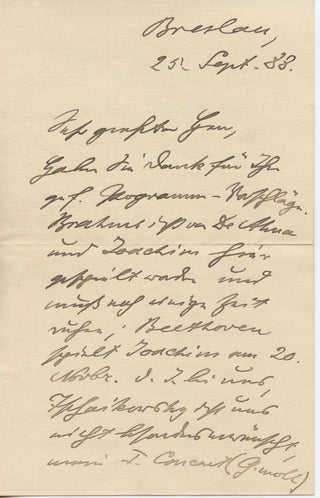 Breslau,
25. Sept. 88.
Sehr geehrter Herr,
Haben Sie Dank für Ihre
gef. Programm-Vorschläge.
Brahms ist von De Ahna
und Joachim hier
gespielt worden und
muß noch einige Zeit
ruhen; Beethoven
spielt Joachim am 20.
Novbr. d. J. bei uns,
Tschaikowsky ist uns
nicht besonders erwünscht,
I. Concert (G moll)